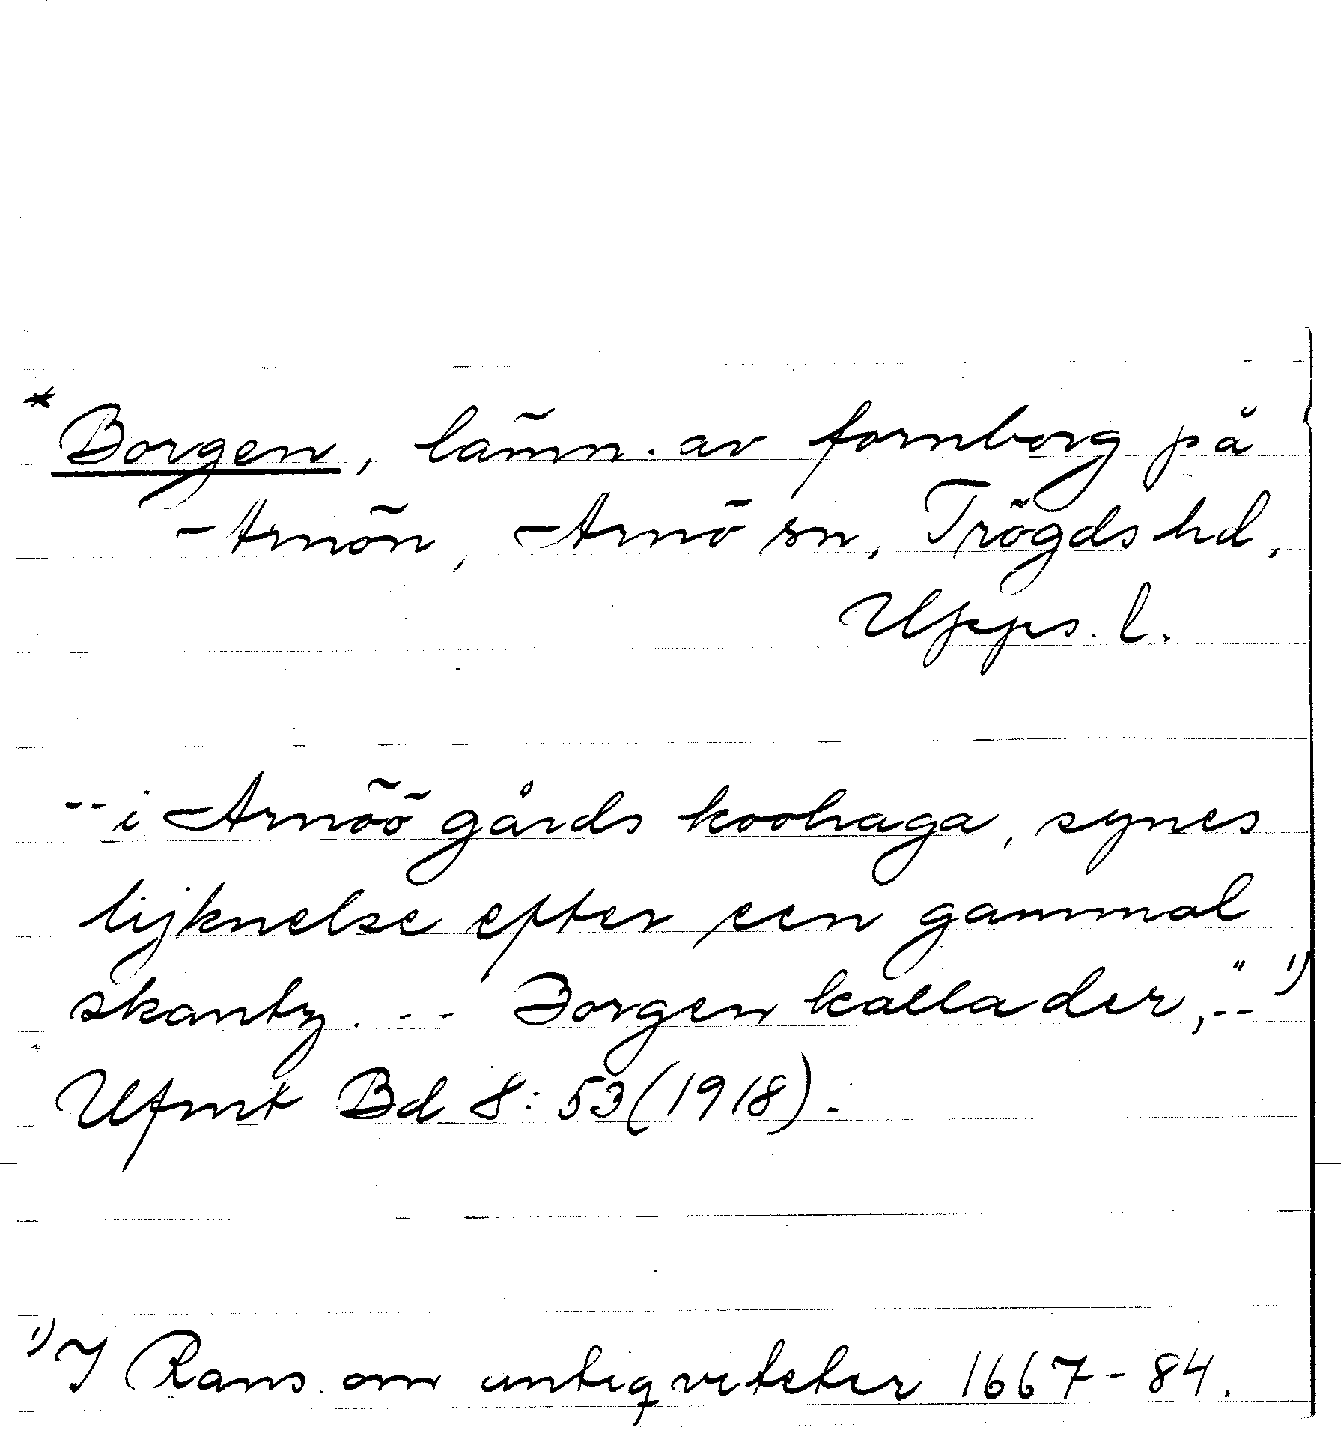 * Borgen, lämn. av fornborg på
Arnön, Arnö sn, Trögds hd,
Upps. l.
-- i Arnöö gårds koohaga, synes
lijknelse efter een gammal
skantz. -- Borgen kallader, --" 1)
Ufmt Bd 8: 53 (1918).
1) I Rans. om antiqviteter 1667-84.